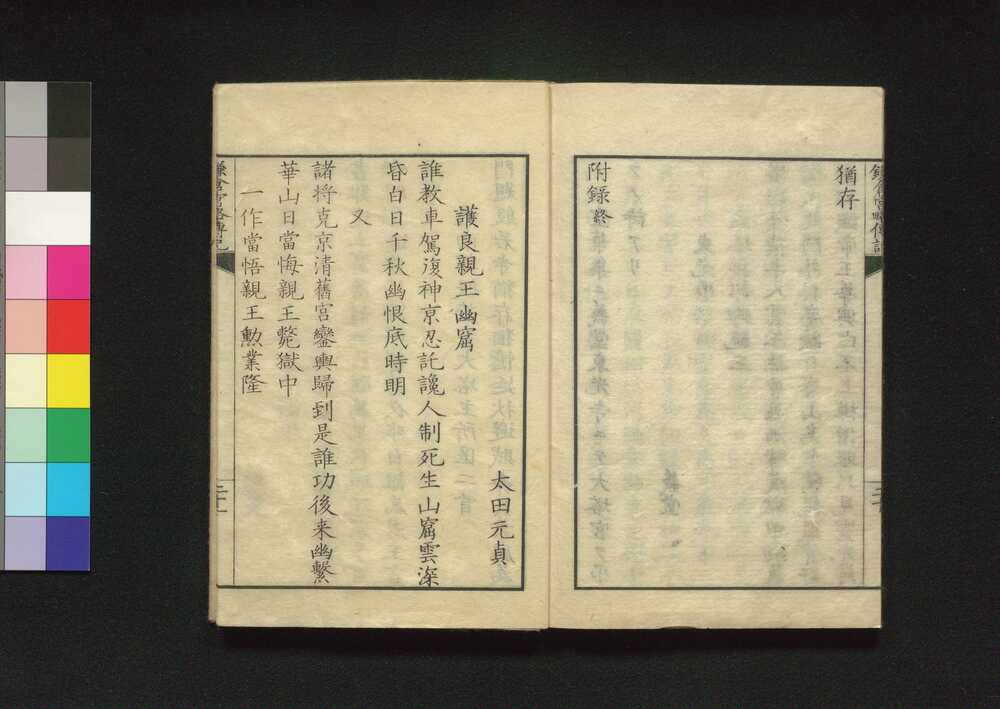 鎌倉宮略傳記
猶存
附錄終
太田元貞
護良親王幽窟
誰教車駕復神京忍託讒人制死生山窟雲深
昏白日千秋幽恨底時明
又
諸将克京清舊宮鑾輿歸到是誰功後来幽繫
華山日當悔親王斃獄中
一作當悟親王勲業隆